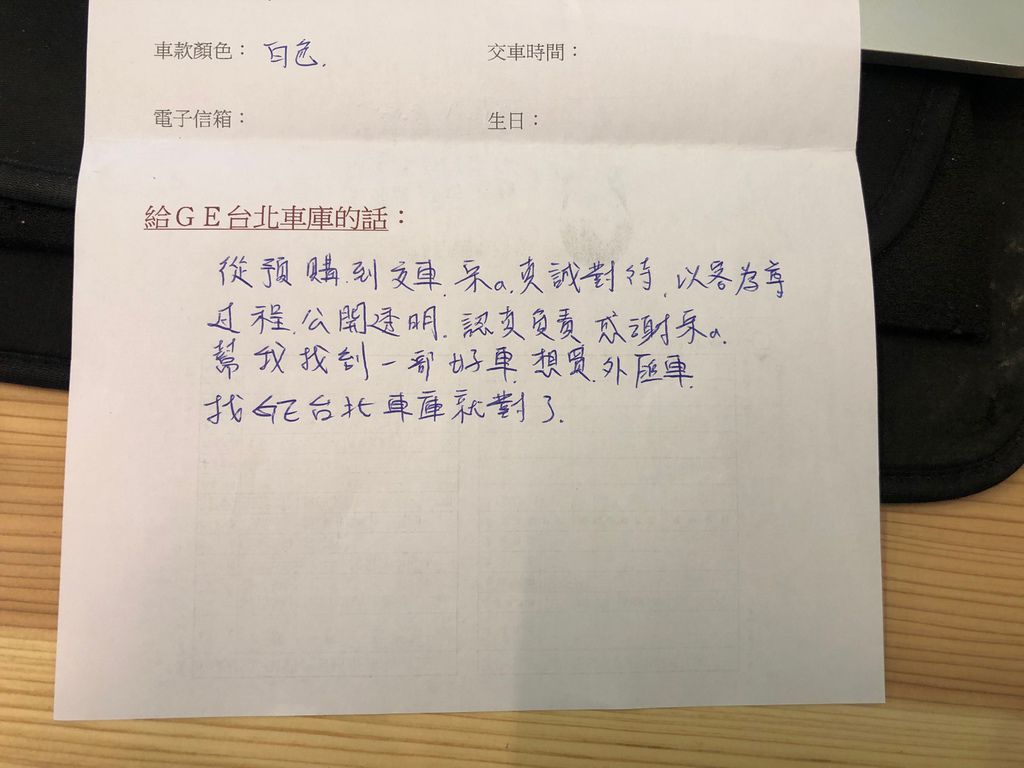 車款顏色： 白色. 交車時間：
電子信箱： 生日：
給ＧＥ台北車庫的話：
從預購到交車.呆a.真誠對待.以客為尊
过程.公開透明.認真負責 感謝呆a.
幫我找到一部好車.想買.外匯車
找GE台北車庫就對了.